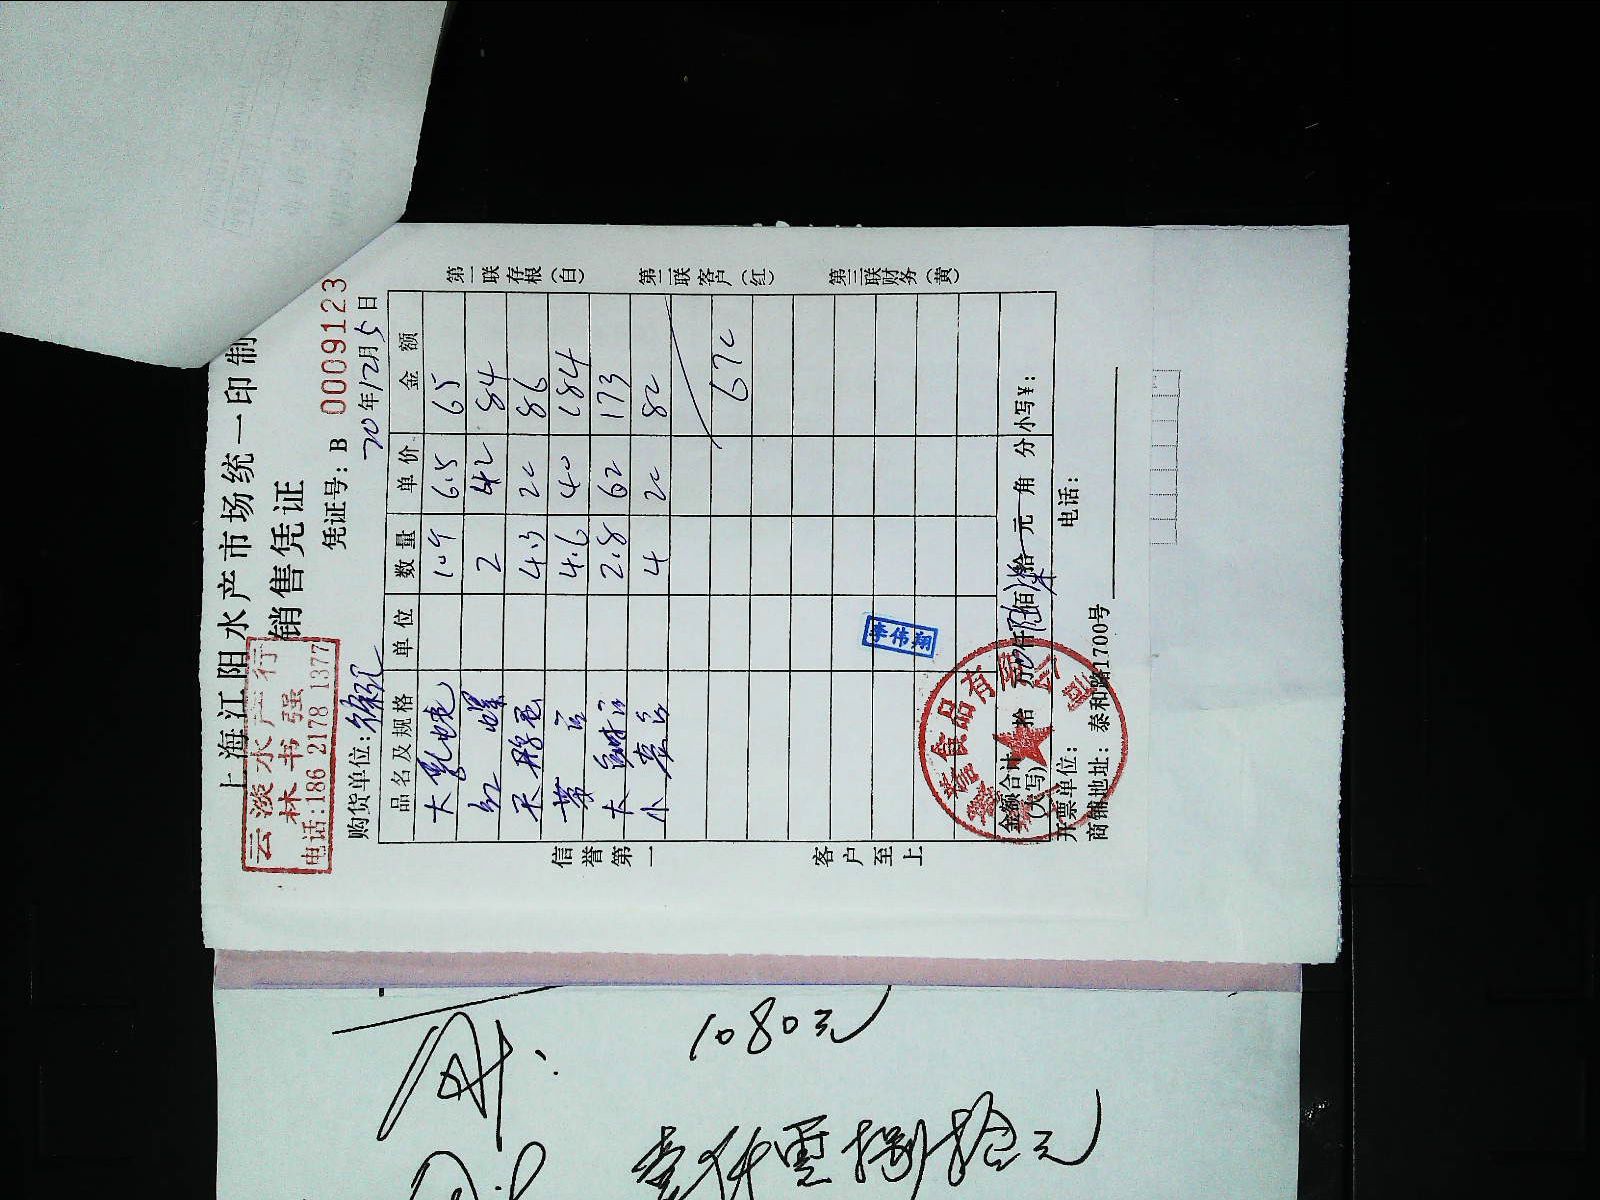 上海江阳水产市场统一印制
销售凭证
云淡水产行
林书强
电话:186 2178 1377
凭证号：B 0009123
购货单位: 徐汇
20年12月5日
品名及规格 单位 数量 单价 金额
大 10.9 6.5 65
红 2 42 84
4.3 20 86
4.6 40 184
大 2.8 62 173
小 4 20 82
670
李伟翔
金额合计(大写) 拾 万 仟 陆佰柒拾 元 角 分 小写¥:
开票单位: 电话:
商铺地址: 泰和路1700号
第一联存根(白)
第二联客户(红)
第三联财务(黄)
信誉第一
客户至上
食品有限公司
1080元
壹仟零捌拾元